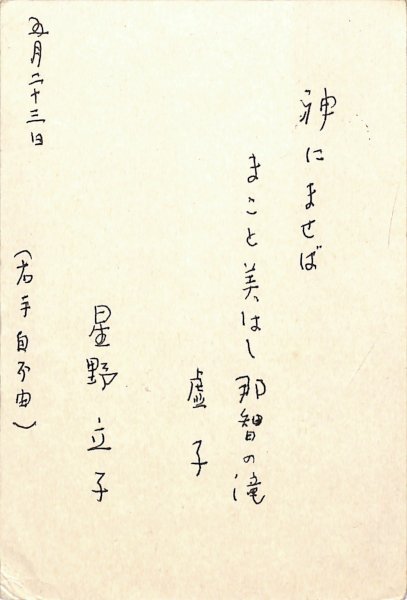 神にませば
まこと美はし那智の滝
虚子
星野立子
五月二十三日
(右手自不由)